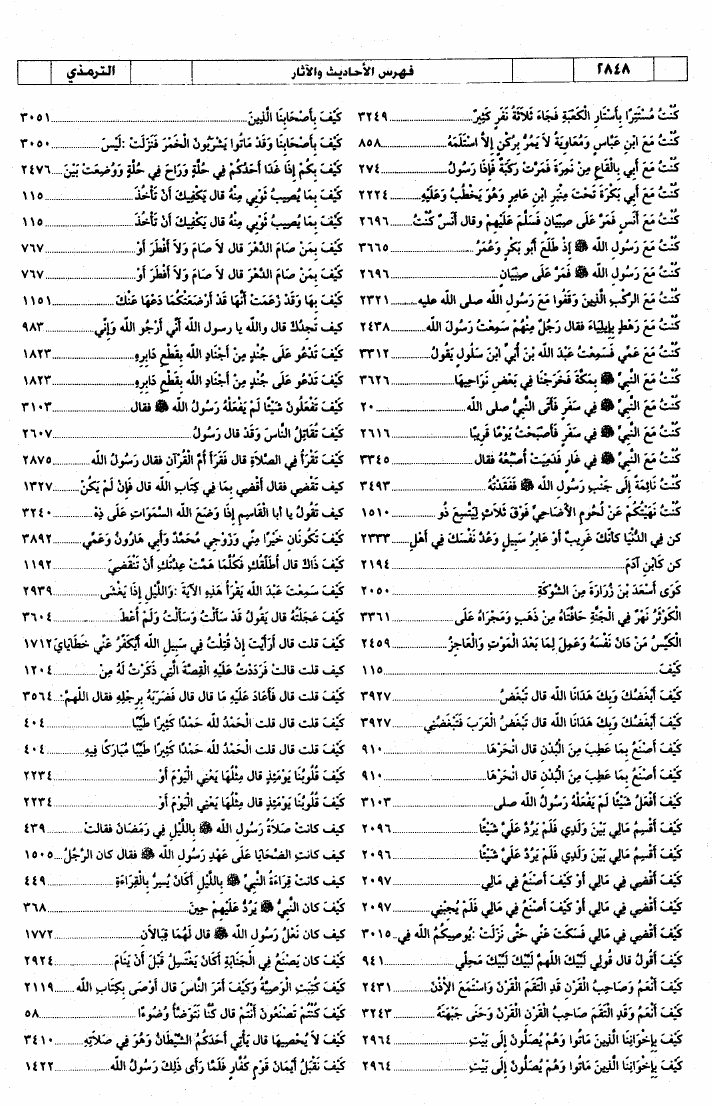 ٢٨٤٨ فهرس الأحاديث والآثار الترمذي
كُنْتُ مُسْتَتِرًا بِأَسْتَارِ الْكَعْبَةِ فَجَاءَ ثَلَاثَةُ نَفَرٍ كَثِيرٌ ٣٢٤٩
كُنْتُ مَعَ ابْنِ عَبَّاسٍ وَمُعَاوِيَةُ لاَ يَمُرُّ بِرُكْنٍ إِلاَّ اسْتَلَمَهُ ٨٥٨
كُنْتُ مَعَ أَبِي بِالْقَاعِ مِنْ نَمِرَةَ فَمَرَّتْ رَكَبَةٌ فَإِذَا رَسُولُ ٢٧٤
كُنْتُ مَعَ أَبِي بَكْرَةَ تَحْتَ مِنْبَرِ ابْنِ عَامِرٍ وَهُوَ يَخْطُبُ وَعَلَيْهِ ٢٢٢٤
كُنْتُ مَعَ أَنَسٍ فَمَرَّ عَلَى صِبْيَانٍ فَسَلَّمَ عَلَيْهِمْ وقال أَنَسٌ كُنْتُ ٢٦٩٦
كُنْتُ مَعَ رَسُولِ الله ﷺ إِذْ طَلَعَ أَبُو بَكْرٍ وَعُمَرُ ٣٦٦٥
كُنْتُ مَعَ رَسُولِ الله ﷺ فَمَرَّ عَلَى صِبْيَانٍ ٢٦٩٦
كُنْتُ مَعَ الرَّكْبِ الَّذِينَ وَقَفُوا مَعَ رَسُولِ الله صلى الله عليه ٢٣٢١
كُنْتُ مَعَ رَهْطٍ بِإِيلِيَاءَ فقال رَجُلٌ مِنْهُمْ سَمِعْتُ رَسُولَ الله ٢٤٣٨
كُنْتُ مَعَ عَمِّي فَسَمِعْتُ عَبْدَ الله بْنَ أُبَيٍّ ابْنَ سَلُولَ يَقُولُ ٣٣١٢
كُنْتُ مَعَ النَّبِيِّ ﷺ بِمَكَّةَ فَخَرَجْنَا فِي بَعْضِ نَوَاحِيهَا ٣٦٢٦
كُنْتُ مَعَ النَّبِيِّ ﷺ فِي سَفَرٍ فَأَتَى النَّبِيُّ صلى الله ٢٠
كُنْتُ مَعَ النَّبِيِّ ﷺ فِي سَفَرٍ فَأَصْبَحْتُ يَوْمًا قَرِيبًا ٢٦١٦
كُنْتُ مَعَ النَّبِيِّ ﷺ فِي غَارٍ فَدَمِيَتْ أُصْبُعُهُ فقال ٣٣٤٥
كُنْتُ نَائِمَةً إِلَى جَنْبِ رَسُولِ الله ﷺ فَفَقَدْتُهُ ٣٤٩٣
كُنْتُ نَهَيْتُكُمْ عَنْ لُحُومِ الأَضَاحِيِّ فَوْقَ ثَلاَثٍ لِيَتَّسِعَ ذُو ١٥١٠
كن فِي الدُّنْيَا كَأَنَّكَ غَرِيبٌ أَوْ عَابِرُ سَبِيلٍ وَعُدَّ نَفْسَكَ فِي أَهْلِ ٢٣٣٣
كن كَابْنِ آدَمَ ٢١٩٤
كَوَى أَسْعَدَ بْنَ زُرَارَةَ مِنَ الشَّوْكَةِ ٢٠٥٠
الْكَوْثَرُ نَهْرٌ فِي الْجَنَّةِ حَافَتَاهُ مِنْ ذَهَبٍ وَمَجْرَاهُ عَلَى ٣٣٦١
الْكَيِّسُ مَنْ دَانَ نَفْسَهُ وَعَمِلَ لِمَا بَعْدَ الْمَوْتِ وَالْعَاجِزُ ٢٤٥٩
كَيْفَ ١١٥
كَيْفَ أَبْغَضُكَ وَبِكَ هَدَانَا الله قال تَبْغَضُ ٣٩٢٧
كَيْفَ أَبْغَضُكَ وَبِكَ هَدَانَا الله قال تَبْغَضُ الْعَرَبَ فَتَبْغَضُنِي ٣٩٢٧
كَيْفَ أَصْنَعُ بِمَا عَطِبَ مِنَ الْبُدْنِ قال انْحَرْهَا ٩١٠
كَيْفَ أَصْنَعُ بِمَا عَطِبَ مِنَ الْبُدْنِ قال انْحَرْهَا ٩١٠
كَيْفَ أَفْعَلُ شَيْئًا لَمْ يَفْعَلْهُ رَسُولُ الله صلى ٣١٠٣
كَيْفَ أَقْسِمُ مَالِي بَيْنَ وَلَدِي فَلَمْ يَرُدَّ عَلَيَّ شَيْئًا ٢٠٩٦
كَيْفَ أَقْسِمُ مَالِي بَيْنَ وَلَدِي فَلَمْ يَرُدَّ عَلَيَّ شَيْئًا ٢٠٩٦
كَيْفَ أَقْضِي فِي مَالِي أَوْ كَيْفَ أَصْنَعُ فِي مَالِي ٢٠٩٧
كَيْفَ أَقْضِي فِي مَالِي أَوْ كَيْفَ أَصْنَعُ فِي مَالِي فَلَمْ يُجِبْنِي ٢٠٩٧
كَيْفَ أَقْضِي فِي مَالِي فَسَكَتَ عَنِّي حَتَّى نَزَلَتْ :يُوصِيكُمُ الله فِي ٣٠١٥
كَيْفَ أَقُولُ قال قُولِي لَبَّيْكَ اللهمَّ لَبَّيْكَ لَبَّيْكَ مَحِلِّي ٩٤١
كَيْفَ أَنْعَمُ وَصَاحِبُ الْقَرْنِ قَدِ الْتَقَمَ الْقَرْنَ وَاسْتَمَعَ الإِذْنَ ٢٤٣١
كَيْفَ أَنْعَمُ وَقَدِ الْتَقَمَ صَاحِبُ الْقَرْنِ الْقَرْنَ وَحَنَى جَبْهَتَهُ ٣٢٤٣
كَيْفَ بِإِخْوَانِنَا الَّذِينَ مَاتُوا وَهُمْ يُصَلُّونَ إِلَى بَيْتِ ٢٩٦٤
كَيْفَ بِإِخْوَانِنَا الَّذِينَ مَاتُوا وَهُمْ يُصَلُّونَ إِلَى بَيْتِ ٢٩٦٤
كَيْفَ بِأَصْحَابِنَا الَّذِينَ ٣٠٥١
كَيْفَ بِأَصْحَابِنَا وَقَدْ مَاتُوا يَشْرَبُونَ الْخَمْرَ فَنَزَلَتْ :لَيْسَ ٣٠٥٠
كَيْفَ بِكُمْ إِذَا غَدَا أَحَدُكُمْ فِي حُلَّةٍ وَرَاحَ فِي حُلَّةٍ وَوُضِعَتْ بَيْنَ ٢٤٧٦
كَيْفَ بِمَا يُصِيبُ ثَوْبِي مِنْهُ قال يَكْفِيكَ أَنْ تَأْخُذَ ١١٥
كَيْفَ بِمَا يُصِيبُ ثَوْبِي مِنْهُ قال يَكْفِيكَ أَنْ تَأْخُذَ ١١٥
كَيْفَ بِمَنْ صَامَ الدَّهْرَ قال لاَ صَامَ وَلاَ أَفْطَرَ أَوْ ٧٦٧
كَيْفَ بِمَنْ صَامَ الدَّهْرَ قال لاَ صَامَ وَلاَ أَفْطَرَ أَوْ ٧٦٧
كَيْفَ بِهَا وَقَدْ زَعَمَتْ أَنَّهَا قَدْ أَرْضَعَتْكُمَا دَعْهَا عَنْكَ ١١٥١
كيف تَجِدُكَ قال والله يا رسول الله أَنِّي أَرْجُو الله وَإِنِّي ٩٨٣
كَيْفَ تَدْعُو عَلَى جُنْدٍ مِنْ أَجْنَادِ الله بِقَطْعِ دَابِرِهِ ١٨٢٣
كَيْفَ تَدْعُو عَلَى جُنْدٍ مِنْ أَجْنَادِ الله بِقَطْعِ دَابِرِهِ ١٨٢٣
كَيْفَ تَفْعَلُونَ شَيْئًا لَمْ يَفْعَلْهُ رَسُولُ الله ﷺ فقال ٣١٠٣
كَيْفَ تُقَاتِلُ النَّاسَ وَقَدْ قال رَسُولُ ٢٦٠٧
كَيْفَ تَقْرَأُ فِي الصَّلاَةِ قال فَقَرَأَ أُمَّ الْقُرْآنِ فقال رَسُولُ الله ٢٨٧٥
كَيْفَ تَقْضِي فقال أَقْضِي بِمَا فِي كِتَابِ الله قال فَإِنْ لَمْ يَكُنْ ١٣٢٧
كَيْفَ تَقُولُ يا أبا الْقَاسِمِ إِذَا وَضَعَ الله السَّمَوَاتِ عَلَى ذِهْ ٣٢٤٠
كَيْفَ تَكُونَانِ خَيْرًا مِنِّي وَزَوْجِي مُحَمَّدٌ وَأَبِي هَارُونُ وَعَمِّي ٣٨٩٢
كَيْفَ ذَاكَ قال أُطَلِّقُكِ فَكُلَّمَا هَمَّتْ عِدَّتُكِ أَنْ تَنْقَضِيَ ١١٩٢
كَيْفَ سَمِعْتَ عَبْدَ الله يَقْرَأُ هَذِهِ الآيَةَ :وَاللَّيْلِ إِذَا يَغْشَى ٢٩٣٩
كَيْفَ عَجَلَتُهُ قال يَقُولُ قَدْ سَأَلْتُ وَسَأَلْتُ وَلَمْ أُعْطَ ٣٦٠٤
كَيْفَ قلت قال أَرَأَيْتَ إِنْ قُتِلْتُ فِي سَبِيلِ الله أَيُكَفَّرُ عَنِّي خَطَايَايَ ١٧١٢
كَيْفَ قلت قالت فَرَدَدْتُ عَلَيْهِ الْقِصَّةَ الَّتِي ذَكَرْتُ لَهُ مِنْ ١٢٠٤
كَيْفَ قلت قال فَأَعَادَ عَلَيْهِ مَا قال قال فَضَرَبَهُ بِرِجْلِهِ فقال اللهمَّ: ٣٥٦٤
كَيْفَ قلت قال قلت الْحَمْدُ لله حَمْدًا كَثِيرًا طَيِّبًا ٤٠٤
كَيْفَ قلت قال قلت الْحَمْدُ لله حَمْدًا كَثِيرًا طَيِّبًا مُبَارَكًا فِيهِ ٤٠٤
كَيْفَ قُلُوبُنَا يَوْمَئِذٍ قال مِثْلُهَا يَعْنِي الْيَوْمَ أَوْ ٢٢٣٤
كَيْفَ قُلُوبُنَا يَوْمَئِذٍ قال مِثْلُهَا يَعْنِي الْيَوْمَ أَوْ ٢٢٣٤
كيف كانت صَلاَةُ رَسُولِ الله ﷺ بِاللَّيْلِ فِي رَمَضَانَ فقالت ٤٣٩
كيف كانتِ الضَّحَايَا عَلَى عَهْدِ رَسُولِ الله ﷺ فقال كان الرَّجُلُ ١٥٠٥
كيف كانت قِرَاءَةُ النَّبِيِّ ﷺ بِاللَّيْلِ أَكَانَ يُسِرُّ بِالْقِرَاءَةِ ٤٤٩
كَيْفَ كان النَّبِيُّ ﷺ يَرُدُّ عَلَيْهِمْ حِينَ ٣٦٨
كيف كان نَعْلُ رَسُولِ الله ﷺ قال لَهُمَا قِبَالاَنِ ١٧٧٢
كَيْفَ كان يَصْنَعُ فِي الْجَنَابَةِ أَكَانَ يَغْتَسِلُ قَبْلَ أَنْ يَنَامَ ٢٩٢٤
كَيْفَ كُتِبَتِ الْوَصِيَّةُ وَكَيْفَ أَمَرَ النَّاسَ قال أَوْصَى بِكِتَابِ الله ٢١١٩
كَيْفَ كُنْتُمْ تَصْنَعُونَ أَنْتُمْ قال كُنَّا نَتَوَضَّأُ وُضُوءًا ٥٨
كَيْفَ لاَ يُحْصِيهَا قال يَأْتِي أَحَدَكُمُ الشَّيْطَانُ وَهُوَ فِي صَلاَتِهِ ٣٤١٠
كَيْفَ نَقْبَلُ أَيْمَانَ قَوْمٍ كُفَّارٍ فَلَمَّا رَأَى ذَلِكَ رَسُولُ الله ١٤٢٢